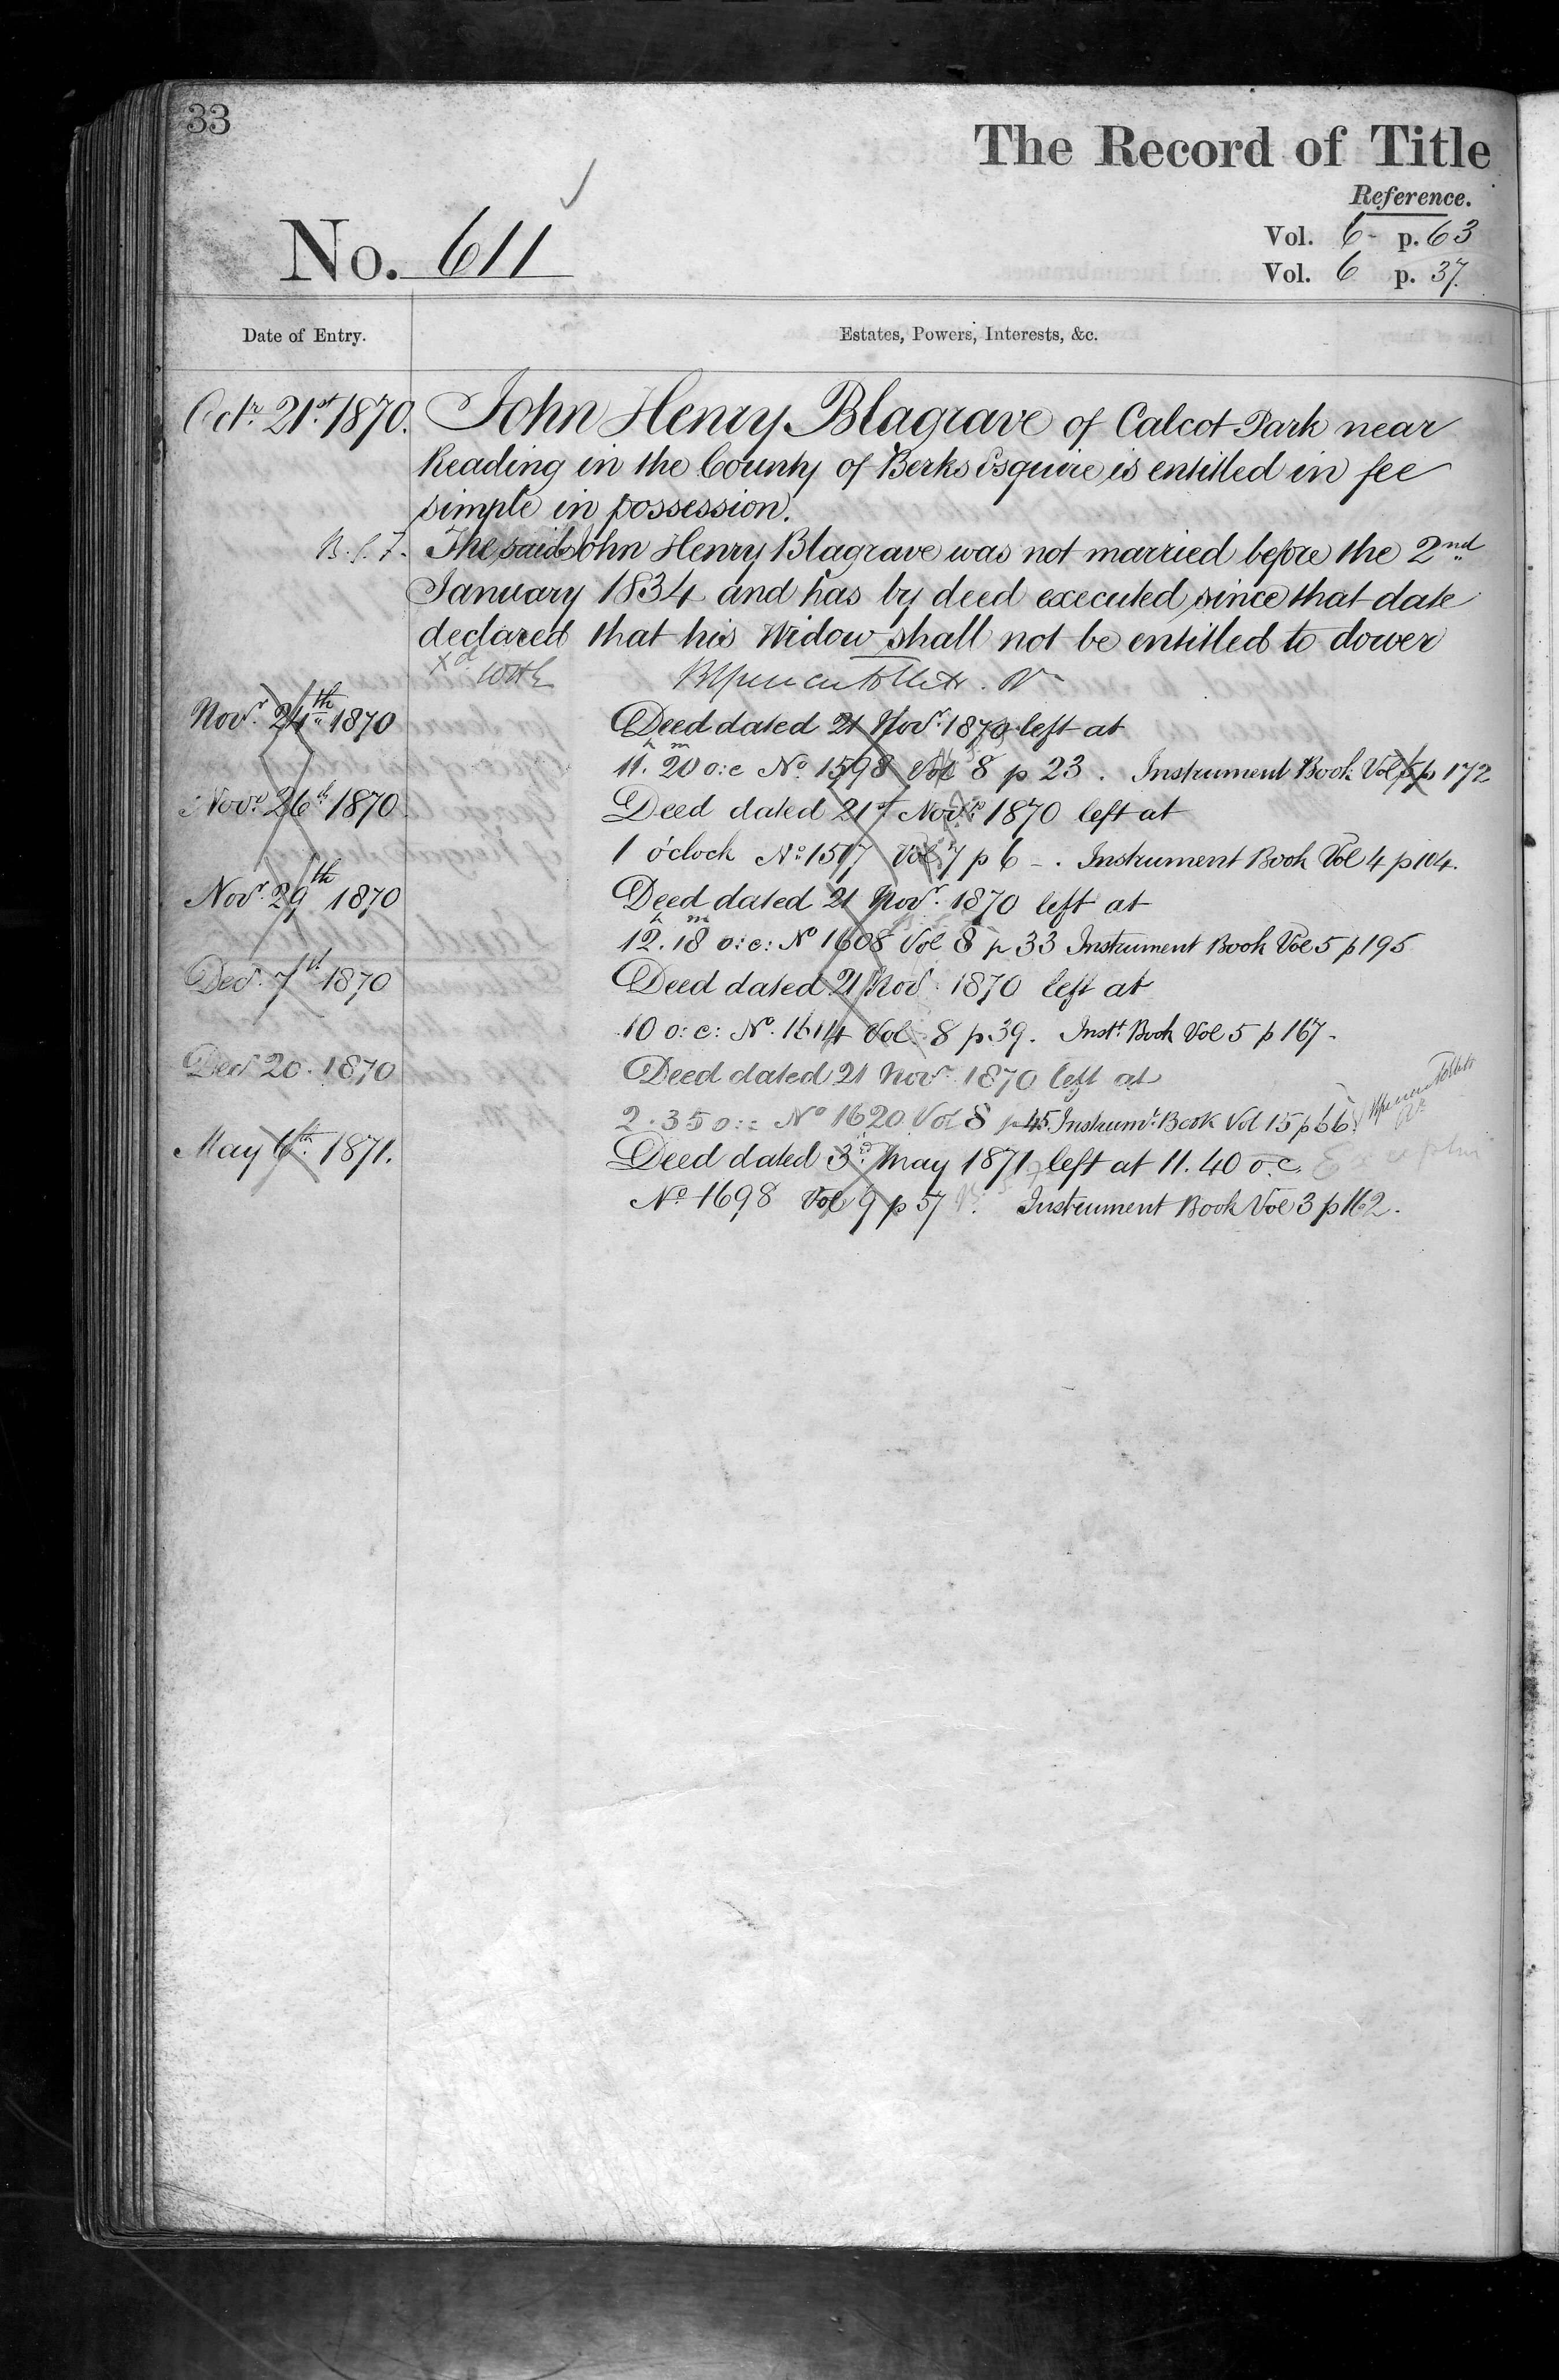 33
The Record of Title
Reference.
No. 611
Vol. 6 p. 63
Vol. 6 p. 37
Date of Entry.
Estates, Powers, Interests, &c.
Octr. 21st. 1870. John Henry Blagrave of Calcot Park near
Reading in the County of Berks Esquire is entitled in fee
simple in possession.
The said John Henry Blagrave was not married before the 2nd
January 1834 and has by deed executed since that date
declared that his Widow shall not be entitled to dower
Novr. 24th 1870 Deed dated 21 Novr. 1870 left at
11h. 20m o:c No. 1598 Vol 8 p 23. Instrument Book Vol 5 p 172
Novr. 26th 1870 Deed dated 21st Novr. 1870 left at
1 o'clock No. 1517 Vol. 7 p 6 - . Instrument Book Vol 4 p 104.
Novr. 29th 1870 Deed dated 21 Novr. 1870 left at
12h. 18m o:c: No 1608 Vol 8 p 33 Instrument Book Vol 5 p 195
Decr. 7th 1870 Deed dated 21 Novr. 1870 left at
10 o:c: No. 1614 Vol 8 p 39. Instt. Book Vol 5 p 167.
Decr 20. 1870 Deed dated 21 Novr. 1870 left at
2.35 o:c No 1620 Vol 8 p 45. Instrumt. Book Vol 15 p 66.
May 6th. 1871. Deed dated 3rd. May 1871 left at 11.40 o.c.
No 1698 Vol 9 p 57. Instrument Book Vol 3 p 162.